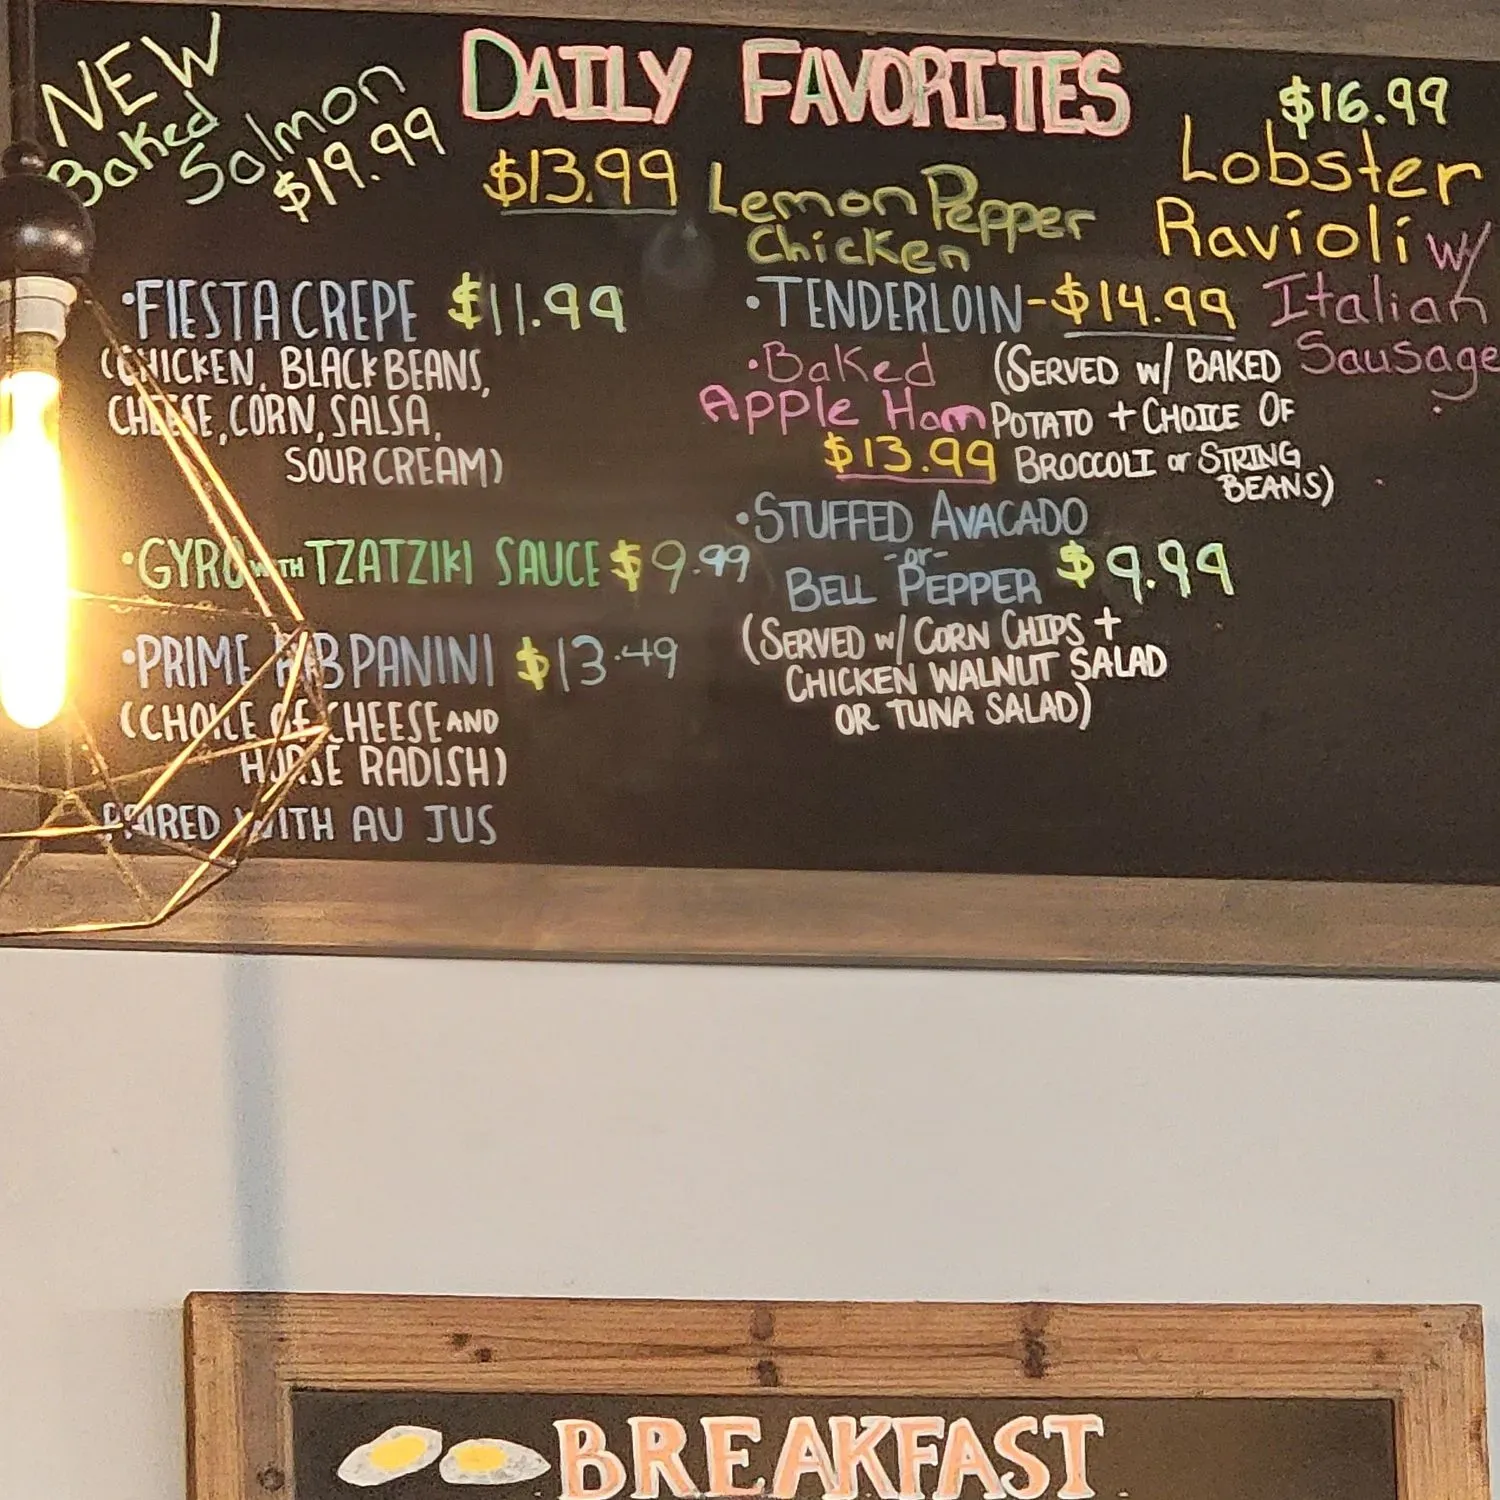 DAILY FAVORITES
NEW
Baked
Salmon
$19.99
$13.99 Lemon Pepper
Chicken
$16.99
Lobster
Ravioli w/
Italian
Sausage
•FIESTA CREPE $11.99
(CHICKEN, BLACK BEANS,
CHEESE, CORN, SALSA,
SOUR CREAM)
•GYRO WITH TZATZIKI SAUCE $9.99
•PRIME RIB PANINI $13.49
(CHOICE OF CHEESE AND
HORSE RADISH)
PAIRED WITH AU JUS
•TENDERLOIN-$14.99
(SERVED W/ BAKED
POTATO + CHOICE OF
BROCCOLI or STRING
BEANS)
•Baked
Apple Ham
$13.99
•STUFFED AVACADO
-or-
BELL PEPPER $9.99
(SERVED W/ CORN CHIPS +
CHICKEN WALNUT SALAD
OR TUNA SALAD)
BREAKFAST